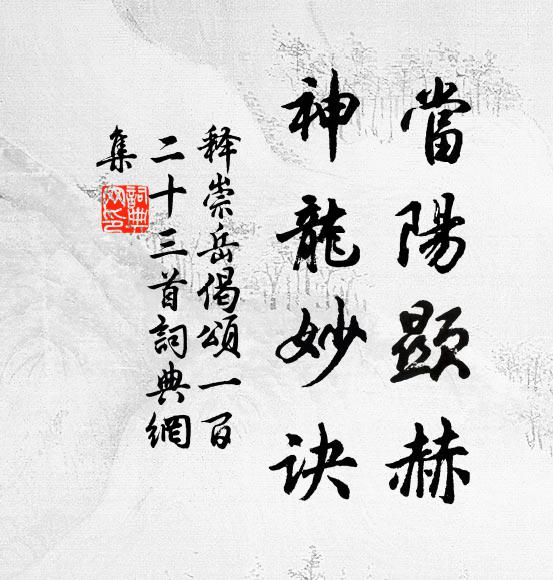 當陽顯赫
神龍妙诀
释崇岳偈頌一百
二十三首詞典網
集
詞典
網印